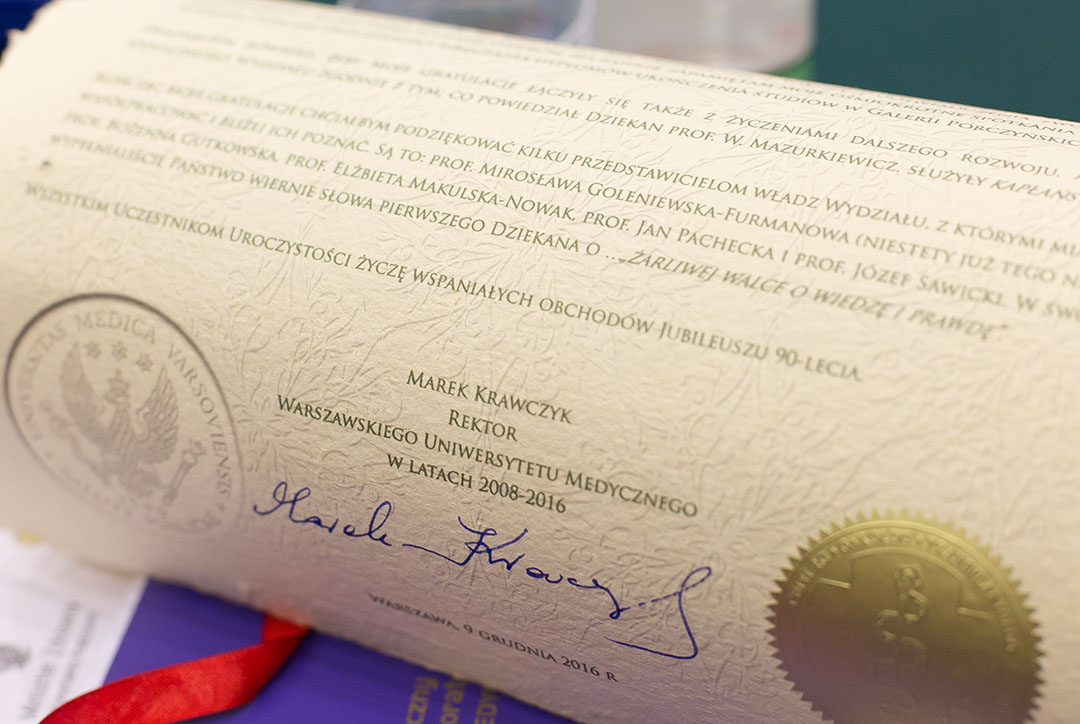 MOJE OŚMIOKROTNE SPOTKANIA
DYPLOMÓW UKOŃCZENIA STUDIÓW W GALERII PORCZYŃSKICH
MOJE GRATULACJE ŁĄCZYŁY SIĘ TAKŻE Z ŻYCZENIAMI DALSZEGO ROZWOJU, A
WYDZIAŁU ZGODNIE Z TYM, CO POWIEDZIAŁ DZIEKAN PROF. W. MAZURKIEWICZ, SŁUŻYŁY KAPŁAŃS
KOŃCZĄC MOJE GRATULACJE CHCIAŁBYM PODZIĘKOWAĆ KILKU PRZEDSTAWICIELOM WŁADZ WYDZIAŁU, Z KTÓRYMI MIA
WSPÓŁPRACOWAĆ I BLIŻEJ ICH POZNAĆ. SĄ TO: PROF. MIROSŁAWA GOLENIEWSKA-FURMANOWA (NIESTETY JUŻ TEGO N
PROF. BOŻENNA GUTKOWSKA, PROF. ELŻBIETA MAKULSKA-NOWAK, PROF. JAN PACHECKA I PROF. JÓZEF SAWICKI. W SWO
WYPEŁNIALIŚCIE PAŃSTWO WIERNIE SŁOWA PIERWSZEGO DZIEKANA O ...„ŻARLIWEJ WALCE O WIEDZĘ I PRAWDĘ".
WSZYSTKIM UCZESTNIKOM UROCZYSTOŚCI ŻYCZĘ WSPANIAŁYCH OBCHODÓW JUBILEUSZU 90-LECIA.
UNIVERSITAS MEDICA VARSOVIENSIS
MAREK KRAWCZYK
REKTOR
WARSZAWSKIEGO UNIWERSYTETU MEDYCZNEGO
W LATACH 2008-2016
Marek Krawczyk
WARSZAWA, 9 GRUDNIA 2016 R
czny